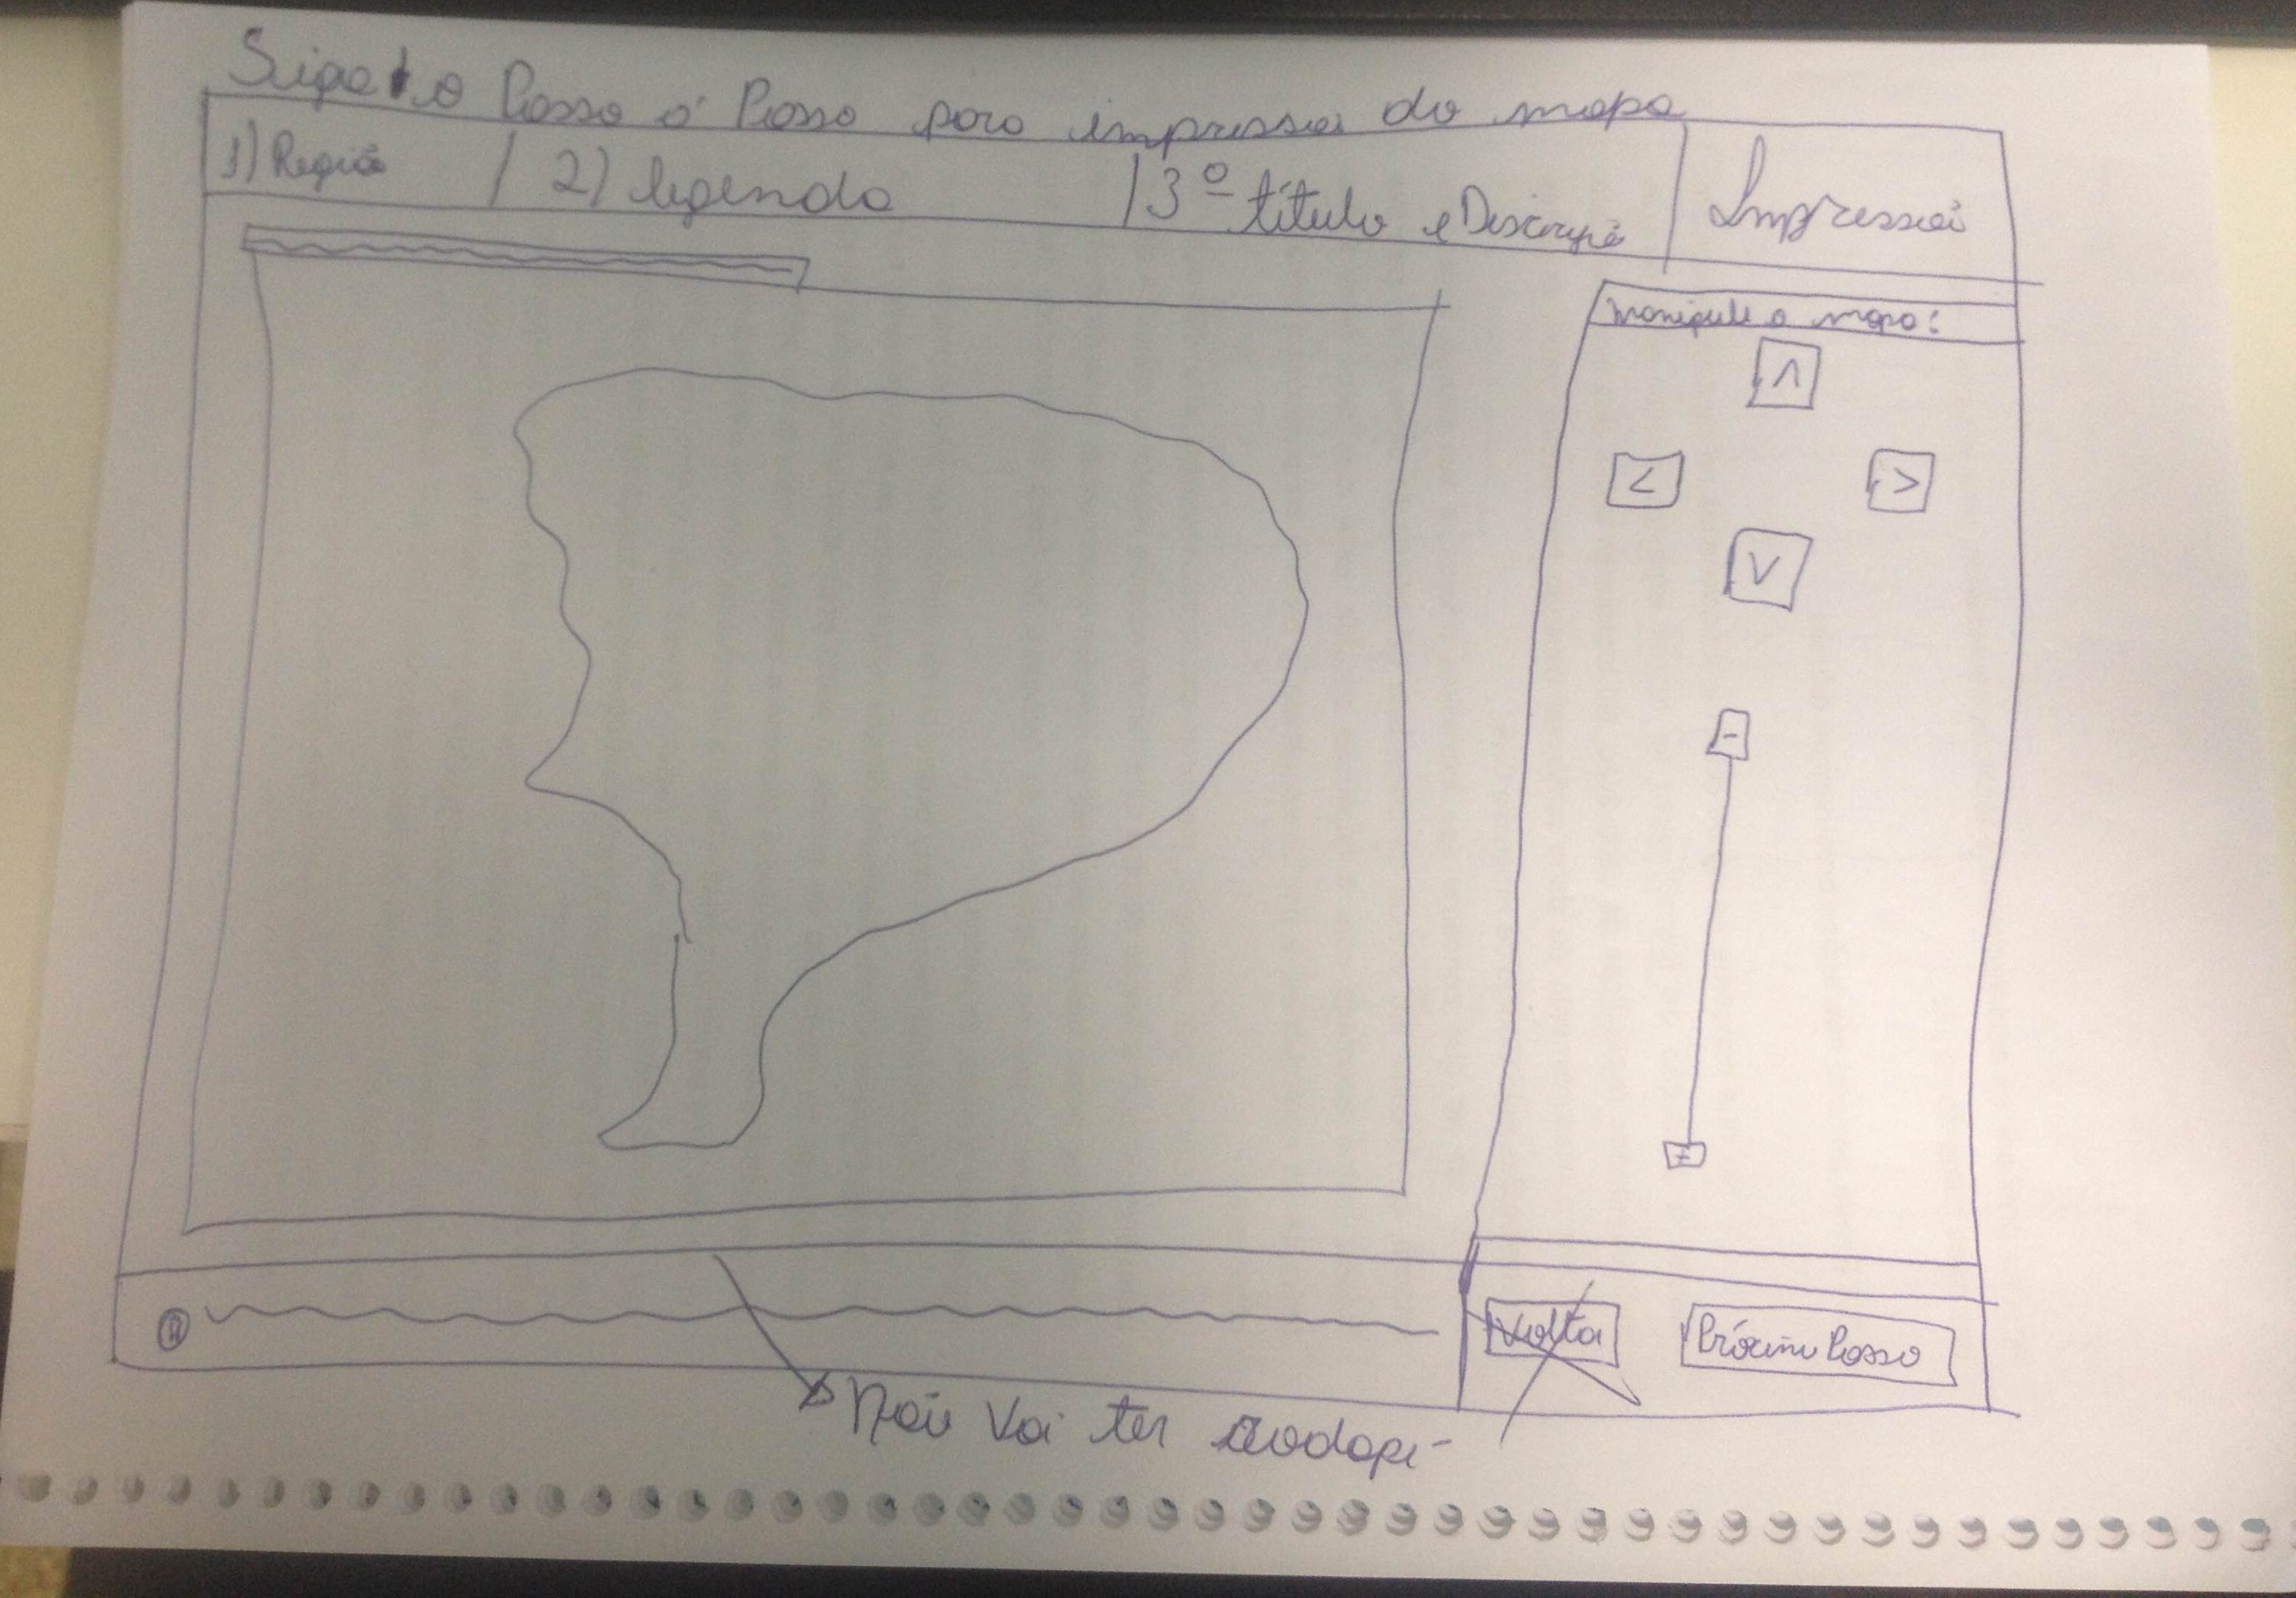 Siga o Passo á Passo para impressão do mapa
1) Região / 2) legenda / 3º título e Descrição Impressão
Manipule o mapa:
^
< >
v
-
+
Volta Próximo Passo
Não vai ter rodapé